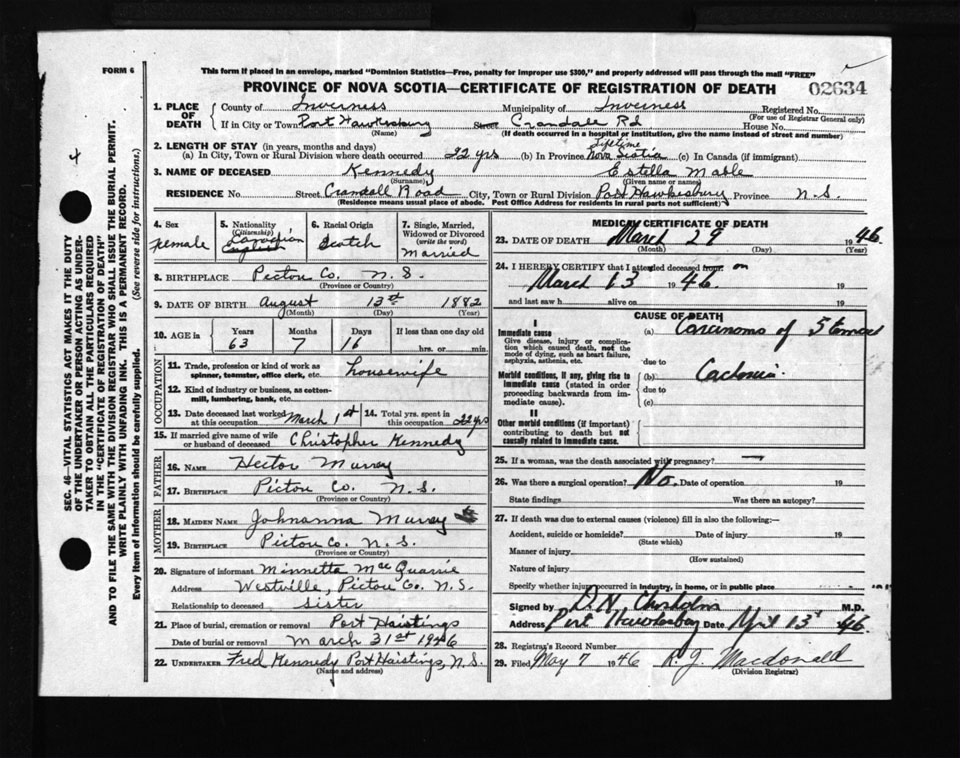 FORM 6
This form if placed in an envelope, marked "Dominion Statistics—Free, penalty for improper use $300," and properly addressed will pass through the mail "FREE"
PROVINCE OF NOVA SCOTIA—CERTIFICATE OF REGISTRATION OF DEATH 02634
1. PLACE OF DEATH County of Inverness Municipality of Inverness Registered No.
(For use of Registrar General only)
If in City or Town Port Hawkesbury Street Crandall Rd House No.
(Name) (If death occurred in a hospital or institution, give the name instead of street and number)
2. LENGTH OF STAY (in years, months and days) Lifetime
(a) In City, Town or Rural Division where death occurred 22 yrs (b) In Province Nova Scotia (c) In Canada (if immigrant)
3. NAME OF DECEASED Kennedy Estella Mable
(Surname) (Given name or names)
RESIDENCE No. Street Crandall Road City, Town or Rural Division Port Hawkesbury Province N.S.
(Residence means usual place of abode. Post Office Address for residents in rural parts not sufficient)
4. Sex female
5. Nationality (Citizenship) Canadian English
6. Racial Origin Scotch
7. Single, Married, Widowed or Divorced (write the word) Married
8. BIRTHPLACE Pictou Co. N.S.
(Province or Country)
9. DATE OF BIRTH August 13th 1882
(Month) (Day) (Year)
10. AGE in Years Months Days If less than one day old
63 7 16 hrs. or min.
OCCUPATION
11. Trade, profession or kind of work as spinner, teamster, office clerk, etc. housewife
12. Kind of industry or business, as cotton-mill, lumbering, bank, etc.
13. Date deceased last worked at this occupation March 1st
14. Total yrs. spent in this occupation 22 yrs
15. If married give name of wife or husband of deceased Christopher Kennedy
FATHER
16. NAME Hector Murray
17. BIRTHPLACE Pictou Co. N.S.
(Province or Country)
MOTHER
18. MAIDEN NAME Johnanna Murray
19. BIRTHPLACE Pictou Co. N.S.
(Province or Country)
20. Signature of informant Minnetta MacQuarrie
Address Westville, Pictou Co. N.S.
Relationship to deceased Sister
21. Place of burial, cremation or removal Port Haistings
Date of burial or removal March 31st 1946
22. UNDERTAKER Fred Kennedy Port Haistings, N.S.
(Name and address)
MEDICAL CERTIFICATE OF DEATH
23. DATE OF DEATH March 29 1946
(Month) (Day) (Year)
24. I HEREBY CERTIFY that I attended deceased from: on
March 13 1946. 19
and last saw h alive on 19
CAUSE OF DEATH
I
Immediate cause (a) Carcinoma of Stomach
Give disease, injury or complication which caused death, not the mode of dying, such as heart failure, asphyxia, asthenia, etc.
due to
Morbid conditions, if any, giving rise to immediate cause (stated in order proceeding backwards from immediate cause).
(b)
due to
(c)
II
Other morbid conditions (if important) contributing to death but not causally related to immediate cause.
25. If a woman, was the death associated with pregnancy? —
26. Was there a surgical operation? No. Date of operation 19
State findings Was there an autopsy?
27. If death was due to external causes (violence) fill in also the following:—
Accident, suicide or homicide? Date of injury 19
(State which)
Manner of injury
(How sustained)
Nature of injury
Specify whether injury occurred in industry, in home, or in public place
Signed by M.D.
Address Port Hawkesbury Date April 13 46.
28. Registrar's Record Number
29. Filed May 7 1946 R. J. Macdonald
(Division Registrar)
4
SEC. 46—VITAL STATISTICS ACT MAKES IT THE DUTY
OF THE UNDERTAKER OR PERSON ACTING AS UNDER-
TAKER TO OBTAIN ALL THE PARTICULARS REQUIRED
IN THE "CERTIFICATE OF REGISTRATION OF DEATH"
AND TO FILE THE SAME WITH THE DIVISION REGISTRAR WHO SHALL ISSUE THE BURIAL PERMIT.
WRITE PLAINLY WITH UNFADING INK. THIS IS A PERMANENT RECORD.
Every item of information should be carefully supplied. (See reverse side for instructions.)